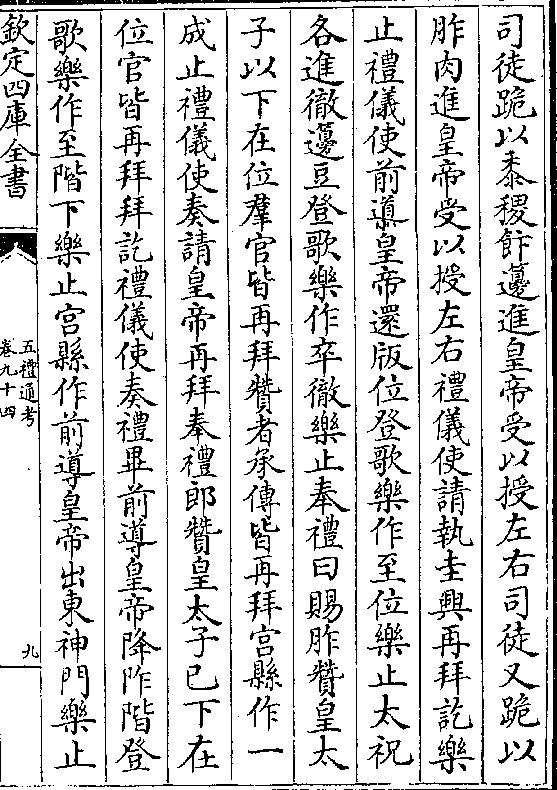 司徒跪以黍稷飰籩進皇帝受以授左右司徒又跪以
胙肉進皇帝受以授左右禮儀使請執圭興再拜訖樂
止禮儀使前導皇帝還版位登歌樂作至位樂止太祝
各進徹籩豆登歌樂作卒徹樂止奉禮曰賜胙贊皇太
子以下在位羣官皆再拜贊者承傳皆再拜宫縣作一
成止禮儀使奏請皇帝再拜奉禮郎贊皇太子已下在
位官皆再拜拜訖禮儀使奏禮畢前導皇帝降阼階登
歌樂作至階下樂止宫縣作前導皇帝出東神門樂止
欽定四庫全書
五禮通考
卷九十四
九